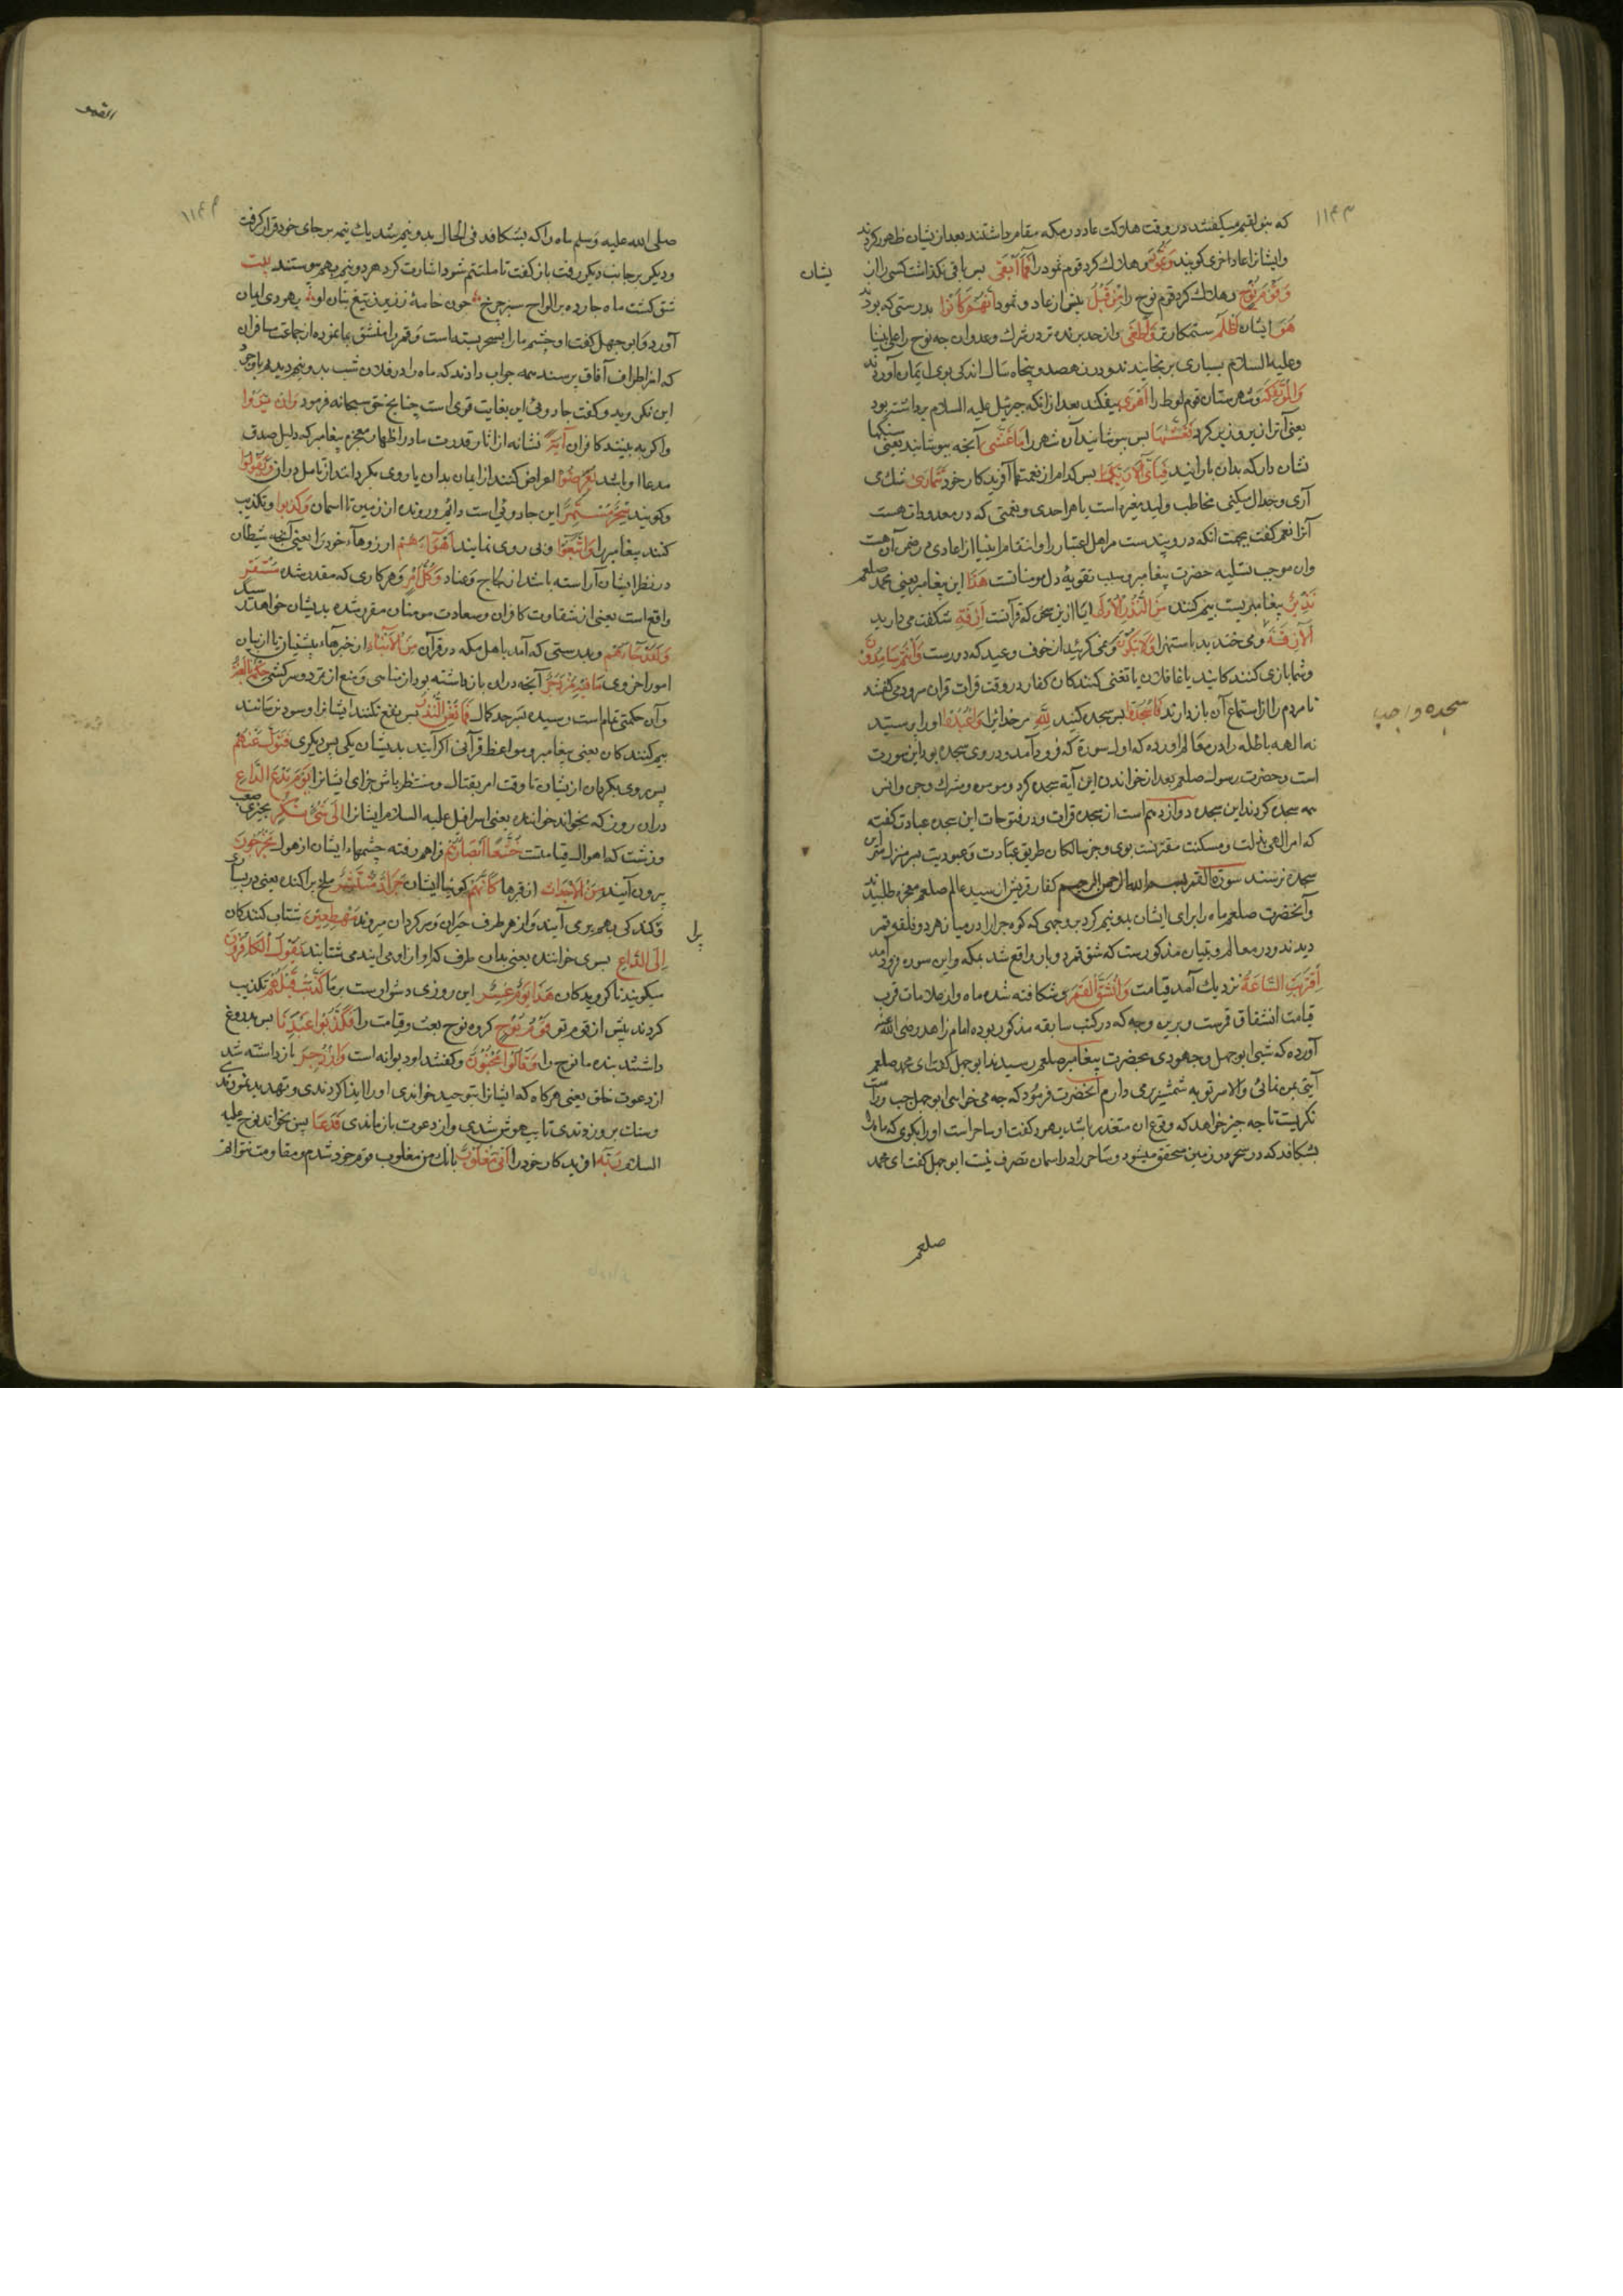 ١١۴٣
که بنو لقیم میکفتند در وقت هلاکت عاد در مکه مقام داشتند بعد از یشان ظهور کردند
وایشانرا عاد اخری کویند وَثَمُودَ وهلاک کرد قوم ثمود را فَمَآ اَبْقٰی پس باقی نکذاشت کسی را از
یشان
وَقَوْمَ نُوحٍ وهلاک کرد قوم نوح را مِنْ قَبْلُ پیش از عاد و ثمود اِنَّهُمْ کَانُوا بدرستی که بودند
هُمْ ایشان اَظْلَمَ ستمکارتر وَاَطْغٰی واز حد برنده تر در شرک وعدوان چه نوح را علی نبینا
وعلیه السلام بسیاری برنجانیدند ودر نهصد وپنجاه سال اندکی بوی ایمان آوردند
وَالْمُؤْتَفِکَةَ وشهرستان قوم لوط را اَهْوٰی بیفکند بعد از انکه جبرئیل علیه السلام برداشته بود
یعنی آنرا زیر وزبر کرد فَغَشّٰیهَا پس بپوشانید آن شهر را مَا غَشّٰی آنچه بپوشانید یعنی سنکها
نشان دار که بدان بارانید فَبِاَیِّ اٰلَآءِ رَبِّکَ پس بکدام از نعمتهاء آفریدکار خود تَتَمَارٰی شک می
آری وجدال میکنی مخاطب ولید مغیره است یا هر احدی ونعمتی که در معدودات هست
آنرا نعم کفت بجهت انکه در و پندست مر اهل اعتبار را وانتقام انبیا از اعادی در ضمن آن هست
وان موجب تسلیه حضرت پیغامبر وسبب تقویهٔ دل مومنانست هٰذَا این پیغامبر یعنی محمد صلعم
نَذِیرٌ پیغامبریست بیم کننده مِنَ النُّذُرِ الْاُوْلٰی
وشما بازی کنندکانید یا غافلان یا تغنی کنندکان کفار در وقت قرات قران سرود می کفتند
تا مردم را از استماع آن باز دارند فَاسْجُدُوا پس سجده کنید لِلّٰهِ مر خدایرا وَاعْبُدُوا اورا پرستید
سجده واجب
نه الهه باطله را در معالم اورده که اول سورة که فرود آمد ودر وی سجده بود این سورت
است وحضرت رسول صلعم بعد از خواندن این آیة سجده کرد ومومن ومشرک وجن وانس
همه سجده کردند این سجده دوازدهم است از سجده قرات ودر فتوحات این سجده عبادت کفته
که امر الهی بذلت ومسکنت مقترنست بوی وجز سالکان طریق عبادت وعبودیت بسر منزل سر این
سجده نرسند سورة القمر بسم الله الرحمن الرحیم کفار قریش از سید عالم صلعم معجزه طلبیدند
وآنحضرت صلعم ماه را برای ایشان بدونیم کرد بر وجهی که کوه حرا را در میان هر دو فلقه قمر
دیدند ودر معالم وتبیان مذکورست که شق قمر دوبار واقع شد بمکه واین سوره فرود آمد
اِقْتَرَبَتِ السَّاعَةُ نزدیک آمد قیامت وَانْشَقَّ الْقَمَرُ وشکافته شده ماه واز علامات قرب
قیامت انشقاق قمرست وبرین وجه که در کتب سابقه مذکور بوده امام زاهد رضی الله عنه
آورده که شبی ابو جهل وجهودی بحضرت پیغامبر صلعم رسیدند ابو جهل کفت ای محمد صلعم
آیتی بمن نمائی والا سر تو به شمشیر بر می دارم آنحضرت فرمود که چه می خواهی ابو جهل چپ وراست
نکریست تا چه چیز خواهد که وقوع ان متعذر باشد یهود کفت او ساحر است اورا بکوی که ماه را
بشکافد که در سحر در زمین متحقق میشود وساحر را در اسمان تصرف نیست ابو جهل کفت ای محمد
صلعم
القمر
١١۴۴
صلی الله علیه وسلم ماه را که بشکافد فی الحال بدونیم شد یک نیمه بر جای خود قرار کرفت
ودیکر بر جانب دیکر رفت باز کفت تا ملتئم شود اشارت کرد هر دو نیم بهم پیوستند بیت
شق کشت ماه چارده بر الواح سبز چرخ چون خامهٔ زنیزه تیغ بنان او یهودی ایمان
آورد وابو جهل کفت او چشم ما را بسحر بسته است وقمر را منشق بما نموده از جماعت مسافران
که از اطراف آفاق برسند همه جواب دادند که ماه را در فلان شب بدونیم دیدیم با وجود
این نکروید وکفت جادوئی این بغایت قوی است چنانچ حق سبحانه فرمود وَاِنْ یَرَوْا
واکر به بینند کافران اٰیَةً نشانه از اثار قدرت ما در اظهار معجزه پیغامبر که دلیل صدق
مدعاا و باشد یُعْرِضُوا اعراض کنند از ایمان بدان یا روی بکردانند از تامل در ان وَیَقُولُوا
وکویند سِحْرٌ مُسْتَمِرٌّ این جادوئی است دائم ورونده از زمین تا اسمان وَکَذَّبُوا وتکذیب
کنند پیغامبر را وَاتَّبَعُوا وپی روی نمایند اَهْوَآءَهُمْ ارزوهاء خود را یعنی آنچه شیطان
در نظر ایشان آراسته باشد از لجاج وعناد وَکُلُّ اَمْرٍ وهر کاری که مقدر شده مُسْتَقِرٌّ
واقع است یعنی از شقاوت کافران وسعادت مومنان مقرر شده بدیشان خواهد رسید
وَلَقَدْ جَآءَهُمْ وبدرستی که آمد باهل مکه در قرآن مِنَ الْاَنْبَآءِ از خبرهاء پیشینیان یا از بیان
امور اخروی مَا فِیهِ مُزْدَجَرٌ آنچه در ان باز داشته بود از مناهی ومنع از تمرد وسرکشی حِکْمَةٌ بَالِغَةٌ
وآن حکمتی تمام است رسیده بسرحد کمال فَمَا تُغْنِ النُّذُرُ پس نفع نکنند ایشانرا وسود نرسانند
بیم کنندکان یعنی پیغامبر ومواعظ قرآنی اکر آیند بدیشان یکی پس دیکری فَتَوَلَّ عَنْهُمْ
پس روی بکردان از یشان تا وقت امر بقتال ومنتظر باش جزای ایشانرا یَوْمَ یَدْعُ الدَّاعِ
در ان روز که بخواند خواننده یعنی اسرافیل علیه السلام ایشانرا اِلٰی شَیْءٍ نُکُرٍ بچیزی صعب
وزشت که اهوال قیامتست خُشَّعًا اَبْصَارُهُمْ فراهم رفته چشمهاء ایشان از هول یَخْرُجُونَ
بیرون آیند مِنَ الْاَجْدَاثِ از قبرها کَاَنَّهُمْ کوئیا ایشان جَرَادٌ مُنْتَشِرٌ ملخ پراکنده یعنی در بسیاری
وکند کی بهم بری آیند واز هر طرف حیران وسرکردان میروند مُهْطِعِینَ شتاب کنندکان
اِلَی الدَّاعِ بسوی خواننده یعنی بدان طرف که اواز او می ایند می شتابند یَقُولُ الْکَافِرُونَ
میکویند ناکرویدکان هٰذَا یَوْمٌ عَسِرٌ این روزی دشوارست بر ما کَذَّبَتْ قَبْلَهُمْ تکذیب
کردند پیش از قوم تو قَوْمُ نُوحٍ کروه نوح بعث وقیامت را فَکَذَّبُوا عَبْدَنَا پس بدروغ
داشتند بنده ما نوح را وَقَالُوا مَجْنُونٌ وکفتند او دیوانه است وَازْدُجِرَ باز داشته شد
از دعوت خلق یعنی هر کاه که ایشانرا بتوحید خواندی اورا ایذا کردندی وتهدید نمودندی
وسنک بر وزدندی تا بیهوش شدی وازدعوت بازماندی فَدَعَا پس بخواند نوح علیه
السلام رَبَّهُ افریدکار خود را اَنِّی مَغْلُوبٌ بانک من مغلوب قوم خود شدم ومقاومت نتوانم